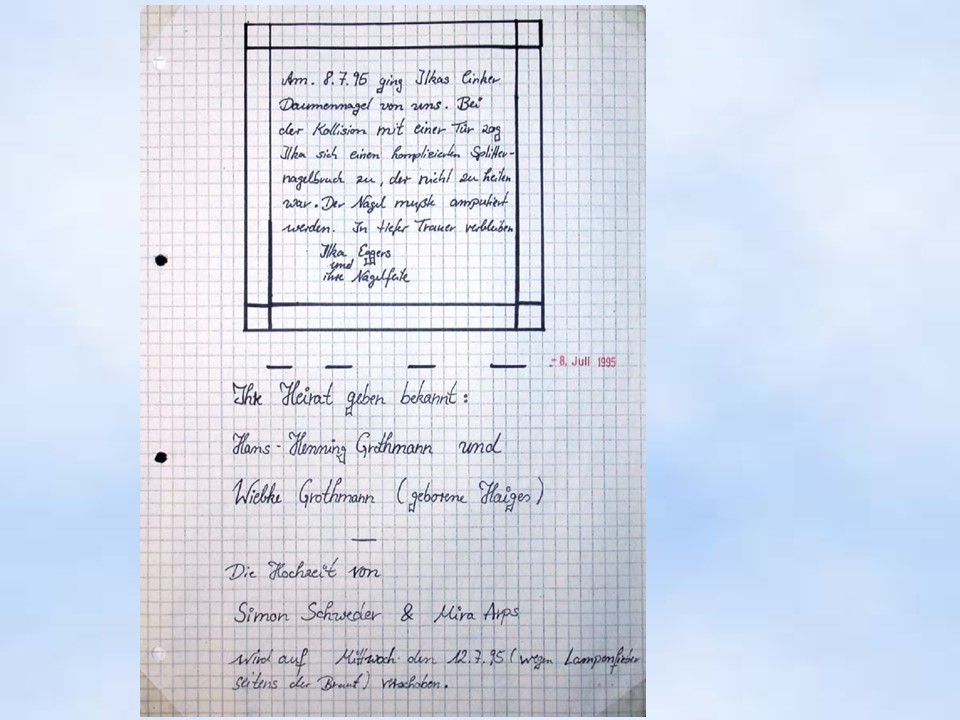 Am. 8.7.95 ging Ilkas linker
Daumennagel von uns. Bei
der Kollision mit einer Tür zog
Ilka sich einen komplizierten Splitter-
nagelbruch zu, der nicht zu heilen
war. Der Nagel mußte amputiert
werden. In tiefer Trauer verbleiben
Ilka Eggers
und
ihre Nagelfeile
- 8. Juli 1995
Ihre Heirat geben bekannt:
Hans-Henning Grothmann und
Wiebke Grothmann (geborene Haiges)
Die Hochzeit von
Simon Schweder & Mira Arps
wird auf Mittwoch den 12.7.95 (wegen Lampenfieber
seitens der Braut) verschoben.